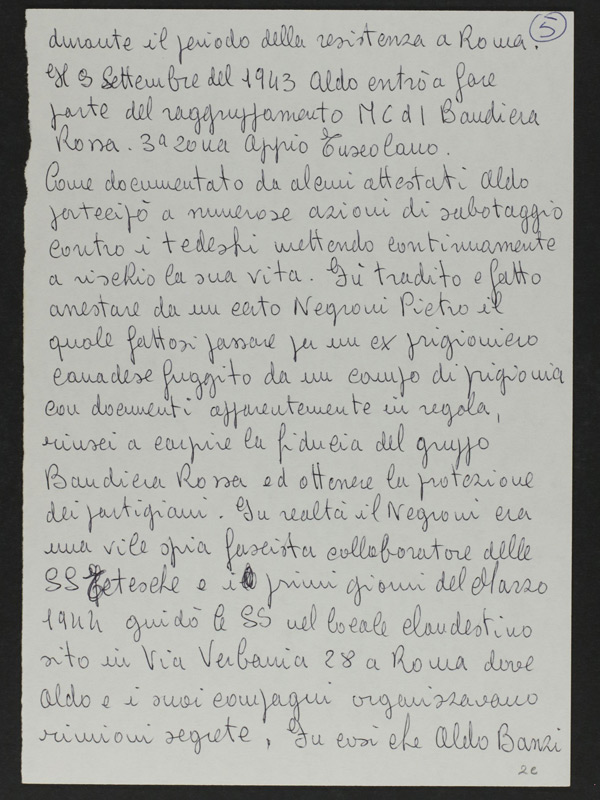 5
durante il periodo della resistenza a Roma.
Il 9 Settembre del 1943 Aldo entrò a fare
parte del raggruppamento MCdI Bandiera
Rossa. 3ª zona Appio Tuscolano.
Come documentato da alcuni attestati Aldo
partecipò a numerose azioni di sabotaggio
contro i tedeshi mettendo continuamente
a rischio la sua vita. Fù tradito e fatto
arrestare da un certo Negroni Pietro il
quale fattosi passare per un ex prigioniero
canadese fuggito da un campo di prigionia
con documenti apparentemente in regola,
riuscì a carpire la fiducia del gruppo
Bandiera Rossa ed ottenere la protezione
dei partigiani. In realtà il Negroni era
una vile spia fascista collaboratore delle
SS tetesche e i primi giorni del Marzo
1944 guidò le SS nel locale clandestino
sito in Via Verbania 28 a Roma dove
Aldo e i suoi compagni organizzavano
riunioni segrete, Fu così che Aldo Banzi
2e